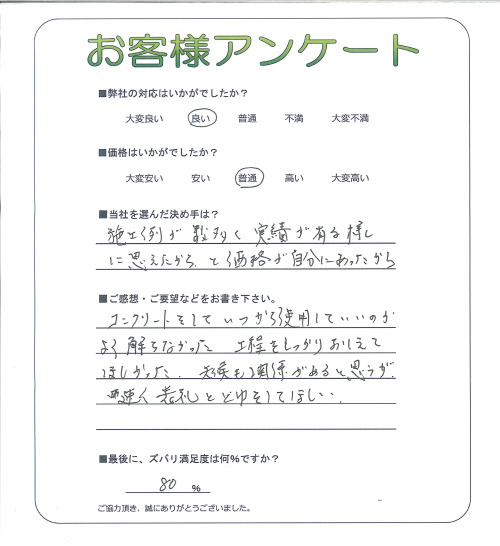 お客様アンケート
■弊社の対応はいかがでしたか？
大変良い 良い 普通 不満 大変不満
■価格はいかがでしたか？
大変安い 安い 普通 高い 大変高い
■当社を選んだ決め手は？
施工例が数多く 実績が有る様し
に思えたから、と価格が自分にあったから
■ご感想・ご要望などをお書き下さい。
コンクリートをして いつから使用していいのか
よく解らなかった 工程をしっかりおしえて
ほしかった、天候も関係があると思うが、
早速 表札と をしてほしい．
■最後に、ズバリ満足度は何％ですか？
80 ％
ご協力頂き、誠にありがとうございました。